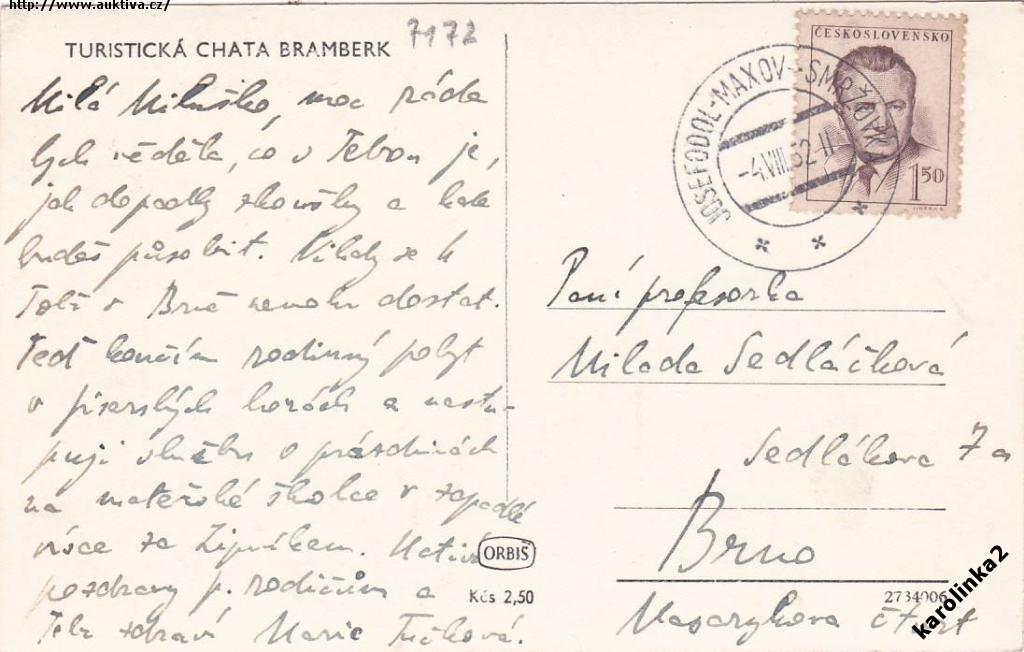 http://www.auktiva.cz/
7172
TURISTICKÁ CHATA BRAMBERK
Milá Miluško, moc ráda
bych věděla, co s Tebou je,
jak dopadly zkoušky a kde
budeš působit. Nikdy se k
Tobě v Brně nemohu dostat.
Teď končím rodinný pobyt
v jizerských horách a nastu-
puji službu o prázdninách
na mateřské školce v zapadlé
vísce za Lipníkem.
pozdravy p. rodičům a
Tobě zdraví Marie Tučková.
ORBIS
Kčs 2,50
JOSEFODOL-MAXOV-SMRŽOVKA
-4.VIII.52-11
ČESKOSLOVENSKO
1.50
Paní profesorka
Milada Sedláčková
Sedlákova 7a
Brno
Masarykova čtvrť
2734006
karolinka2